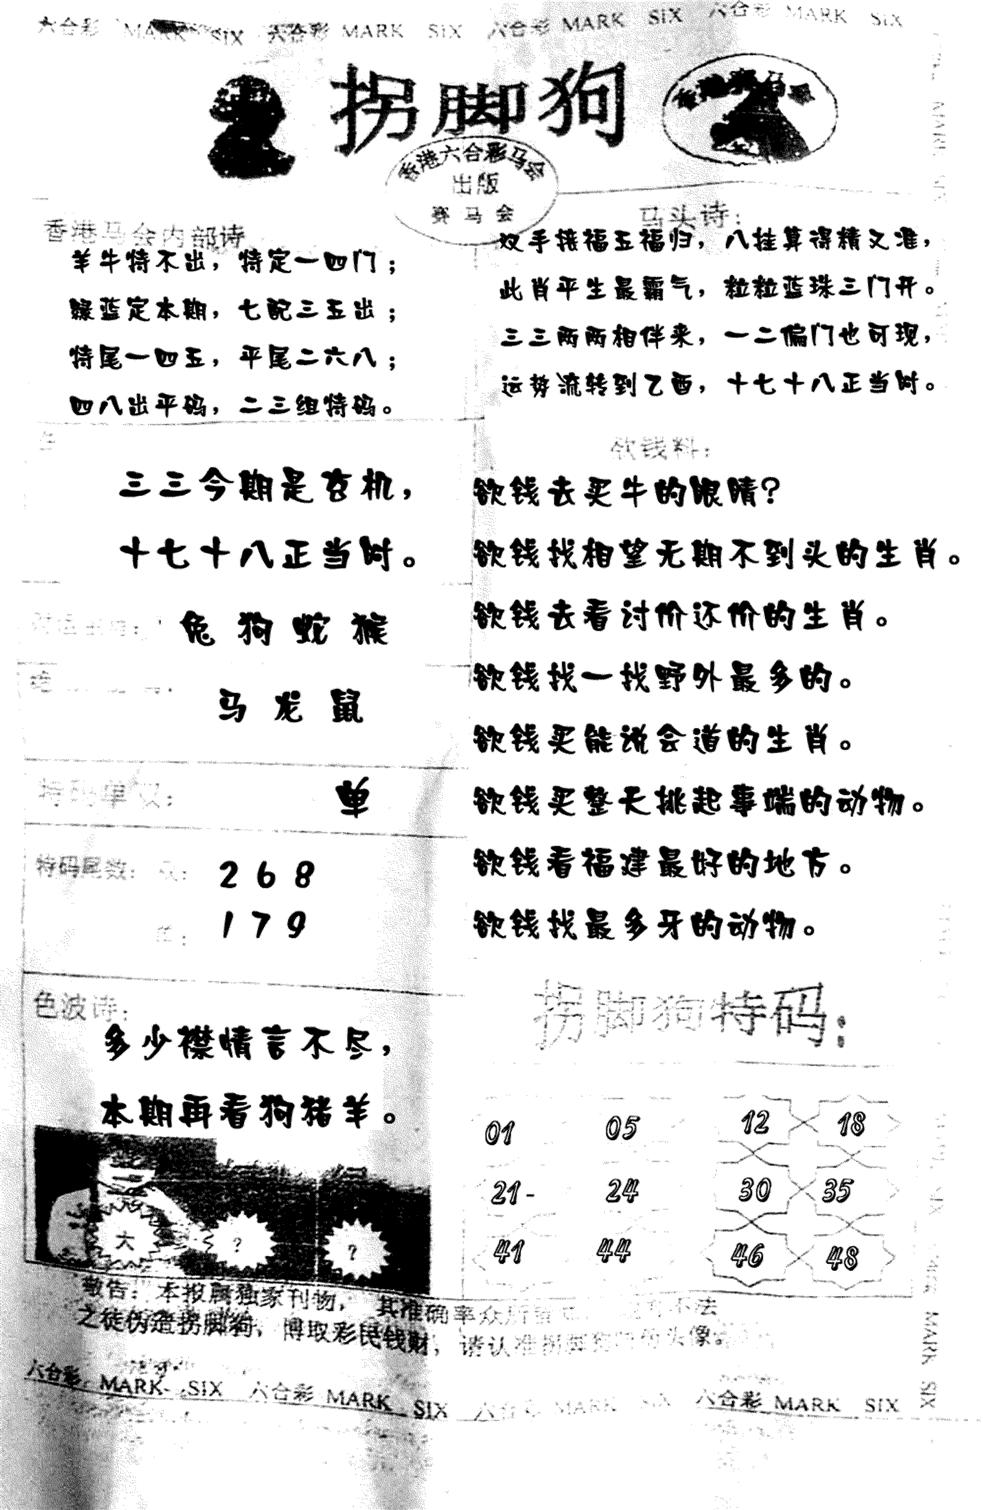 六合彩 MARK SIX 六合彩 MARK SIX 六合彩 MARK SIX 六合彩 MARK SIX
拐脚狗
香港赛马会
香港六合彩马会
出版
赛马会
香港马会内部诗
羊牛特不出，特定一四门；
绿蓝定本期，七配三五出；
特尾一四五，平尾二六八；
四八出平码，二三组特码。
马头诗：
双手接福五福归，八挂算得精又准，
此肖平生最霸气，粒粒蓝珠三门开。
三三两两相伴来，一二偏门也可现，
运势流转到乙酉，十七十八正当时。
三三今期是玄机，
十七十八正当时。
兔 狗 蛇 猴
马 龙 鼠
特码单双： 单
特码尾数： 双： 2 6 8
单： 1 7 9
色波诗：
多少襟情言不尽，
本期再看狗猪羊。
大 ? ?
欲钱料：
欲钱去买牛的眼睛?
欲钱找相望无期不到头的生肖。
欲钱去看讨价还价的生肖。
欲钱找一找野外最多的。
欲钱买能说会道的生肖。
欲钱买整天挑起事端的动物。
欲钱看福建最好的地方。
欲钱找最多牙的动物。
拐脚狗特码：
01 05 12 18
21- 24 30 35
41 44 46 48
敬告：本报属独家刊物，其准确率众所
之徒伪造拐脚狗，博取彩民钱财，请认准拐脚狗 头像。
六合彩 MARK SIX 六合彩 MARK SIX 六合彩 MARK SIX 六合彩 MARK SIX
MARK SIX